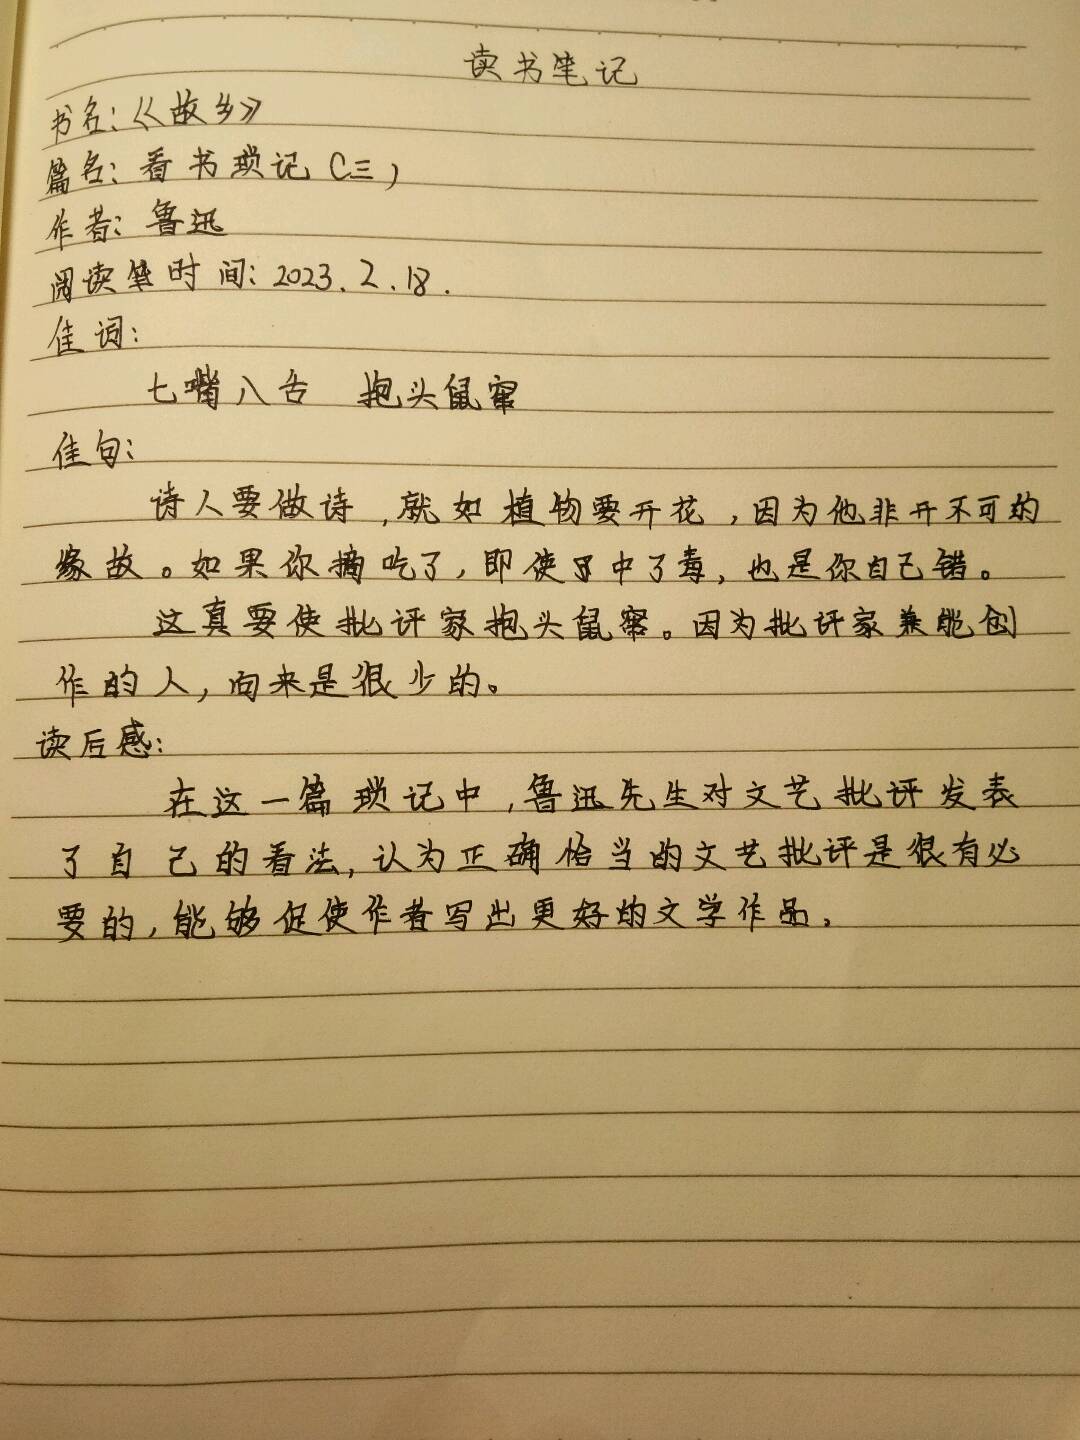 读书笔记
书名:《故乡》
篇名:看书琐记(三)
作者:鲁迅
阅读笔时间:2023.2.18.
佳词:
七嘴八舌 抱头鼠窜
佳句:
诗人要做诗,就如植物要开花,因为他非开不可的
缘故。如果你摘吃了,即使中了毒,也是你自己错。
这真要使批评家抱头鼠窜。因为批评家兼能创
作的人,向来是很少的。
读后感:
在这一篇琐记中,鲁迅先生对文艺批评发表
了自己的看法,认为正确恰当的文艺批评是很有必
要的,能够促使作者写出更好的文学作品。